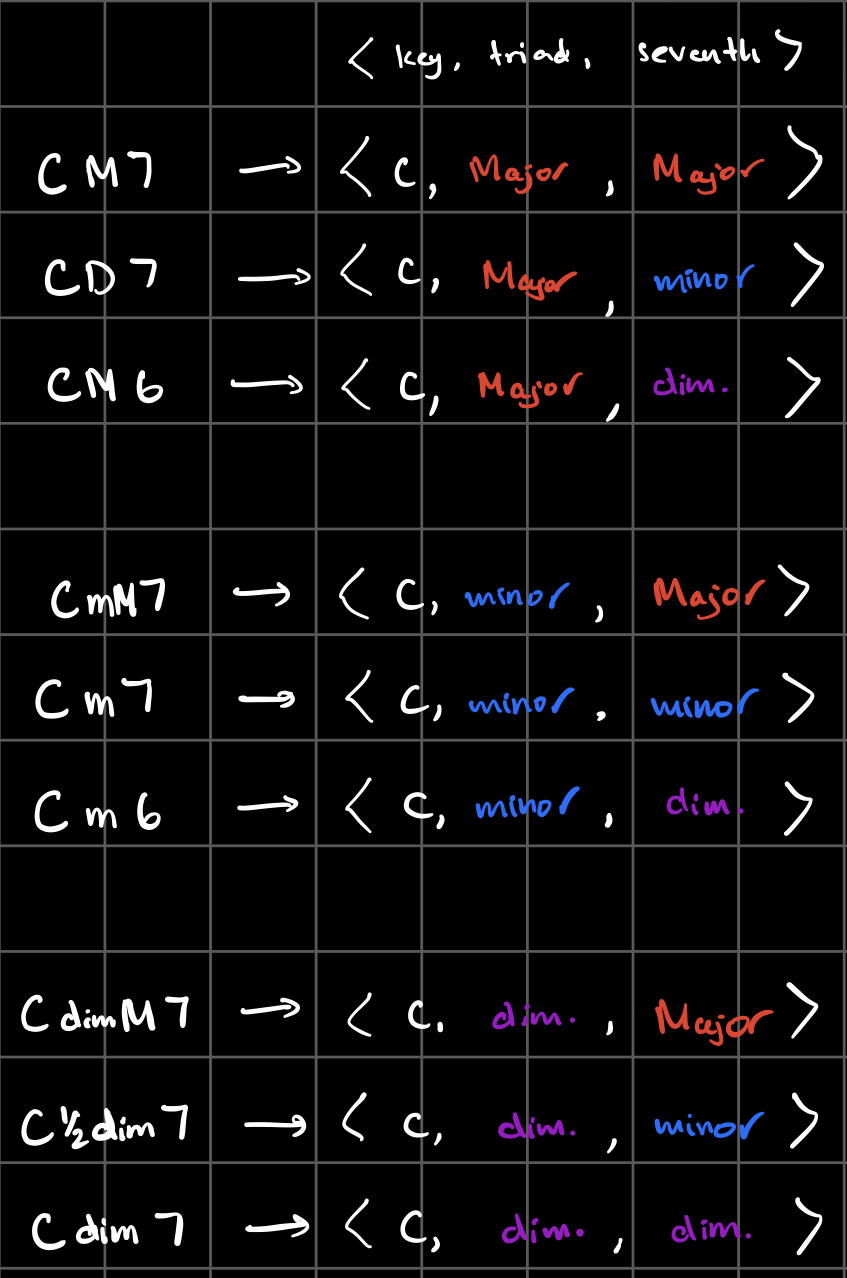 < key, triad, seventh >
CM7 → < C, Major, Major >
CD7 → < C, Major, minor >
CM6 → < C, Major, dim. >
CmM7 → < C, minor, Major >
Cm7 → < C, minor, minor >
Cm6 → < C, minor, dim. >
CdimM7 → < C, dim., Major >
C½dim7 → < C, dim., minor >
Cdim7 → < C, dim., dim. >